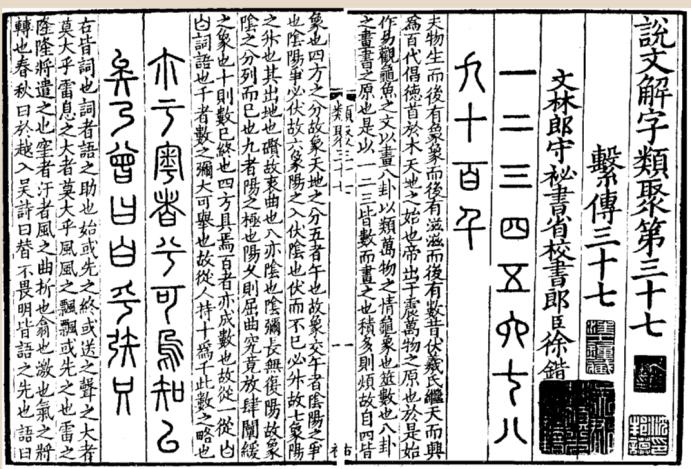 說文解字類聚第三十七
繫傳三十七
文林郎守祕書省校書郎臣徐鍇
一二三四五六七八
九十百千
夫物生而後有象象而後有滋滋而後有數昔伏羲氏繼天而興
爲百代倡德首於木天地之始也帝出于震萬物之原也於是始
作易觀龜魚之文以畫八卦以類萬物之情龜象也筮數也八卦
之畫書之原也是以一二三皆數而畫之也積多則煩故自四皆
類聚三十七
一
象也四方之分故象天地之分五者午也故象交午者陰陽之爭
也陰陽爭必伏故六象陽之入伏陰也伏而不已必升故七象陽
之升也其出地也礙故衺曲也八亦陰也陰彌長無復陽故象
陰之分列而已也九者陽之極也陽夂則屈曲究竟放肆闡緩
之象也十則數已終也四方具焉百者亦成數也故從一從白
白詞語也千者數之彌大可舉也故從人持十爲千此數之略也
亏粵者兮可烏知
矣乃曾曰白乎矤只
右皆詞也詞者語之助也始或先之終或送之聲之大者
莫大乎雷息之大者莫大乎風風之飄飄或先之也雷之
隆隆將遣之也窐者汙者風之曲折也翕也激也氣之將
轉也春秋曰於越入吳詩曰朁不畏明皆語之先也語曰